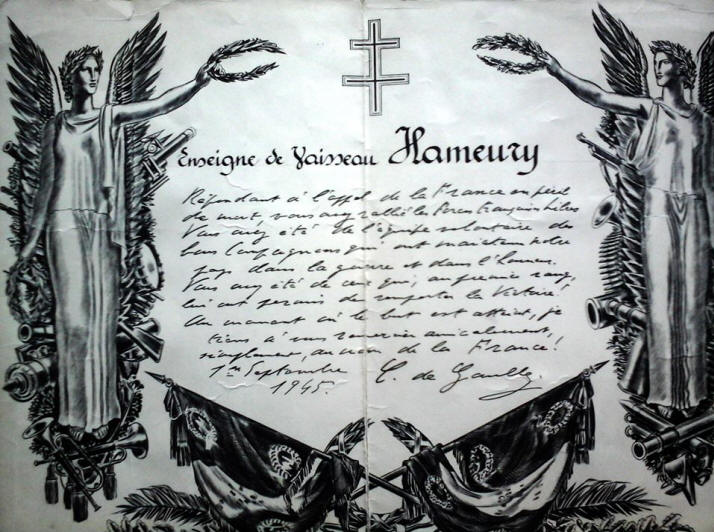 Enseigne de Vaisseau Hameury
Répondant à l'appel de la France en péril
de mort, vous avez rallié les Forces françaises libres
Vous avez été de l'équipe volontaire des
bons Compagnons qui ont maintenu notre
pays dans la guerre et dans l'honneur.
Vous avez été de ceux qui, au premier rang,
lui ont permis de remporter la Victoire!
Au moment où le but est atteint, je
tiens à vous remercier amicalement,
simplement, au nom de la France!
1er Septembre
1945. C. de Gaulle.